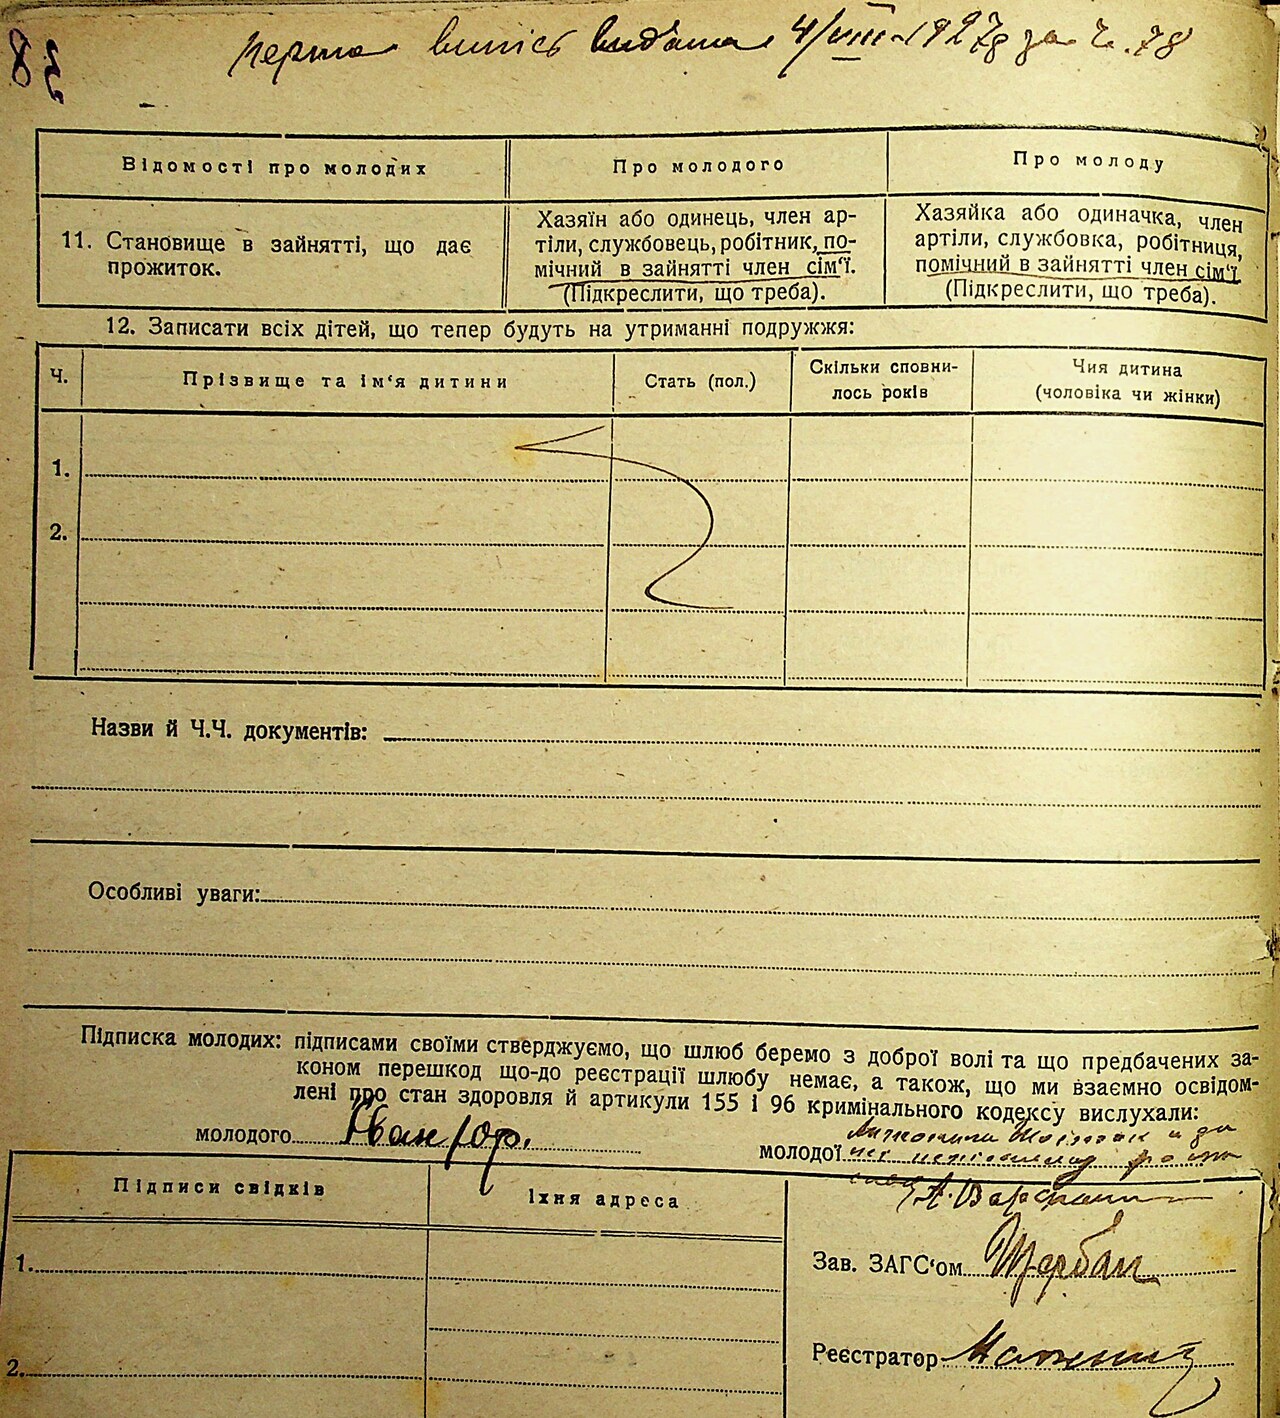 Перша випись видана 4/VIII-1927 р за ч. 78
Відомості про молодих
Про молодого
Про молоду
11. Становище в зайнятті, що дає
прожиток.
Хазяїн або одинець, член ар-
тіли, службовець, робітник, по-
мічний в зайнятті член сім'ї.
(Підкреслити, що треба).
Хазяйка або одиначка, член
артіли, службовка, робітниця,
помічний в зайнятті член сім'ї
(Підкреслити, що треба).
12. Записати всіх дітей, що тепер будуть на утриманні подружжя:
Ч.
Прізвище та ім'я дитини
Стать (пол.)
Скільки сповни-
лось років
Чия дитина
(чоловіка чи жінки)
1.
2.
Назви й Ч.Ч. документів:
Особливі уваги:
Підписка молодих: підписами своїми стверджуємо, що шлюб беремо з доброї волі та що предбачених за-
коном перешкод що-до реєстрації шлюбу немає, а також, що ми взаємно освідом-
лені про стан здоровля й артикули 155 і 96 кримінального кодексу вислухали:
молодого Іван Юр.
молодої
Підписи свідків
Їхня адреса
1.
2.
Зав. ЗАГС'ом Щербан
Реєстратор